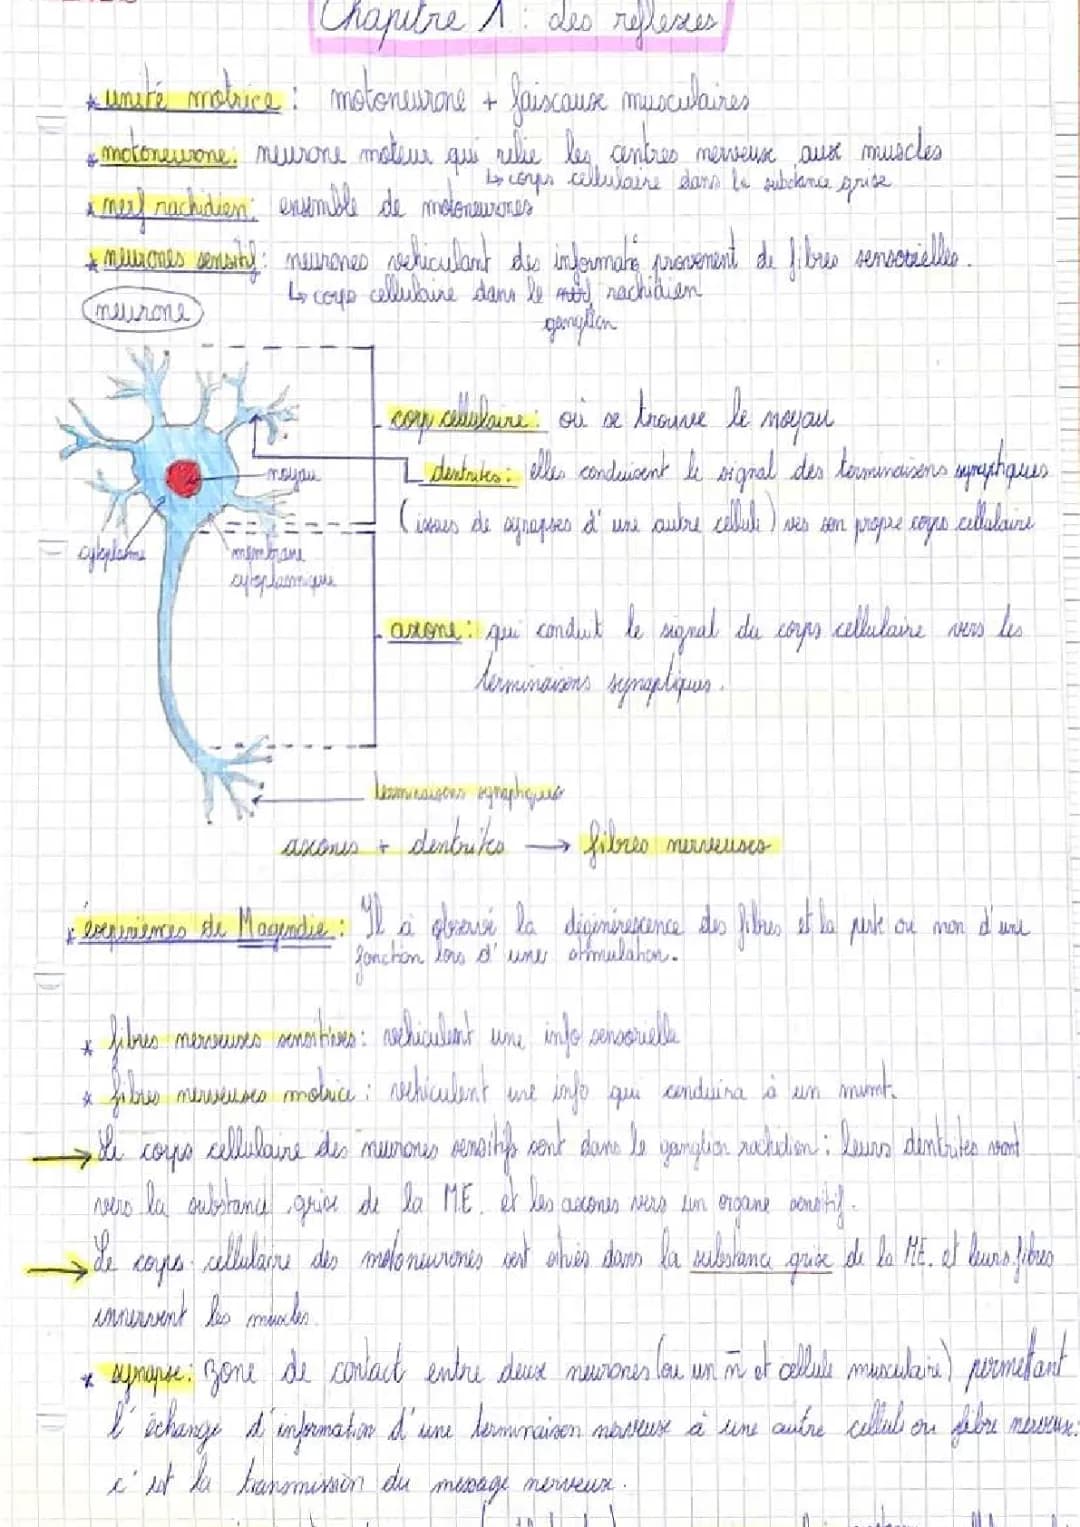 Chapitre 1 : des reflexes
* unité motrice : motoneurone + faisceaux musculaires
* motoneurone : neurone moteur qui relie les centres nerveux aux muscles
↳ corps cellulaire dans la substance grise
* nerf rachidien : ensemble de motoneurones
* neurones sensitif : neurones véhiculant des informat° provenent de fibres sensorielles.
↳ corps cellulaire dans le nerf rachidien
ganglion
neurone
corp cellulaire : où se trouve le noyau
noyau
dentrites : elles conduisent le signal des terminaisons synaptiques
(issues de synapses d'une autre cellule) vers son propre corps cellulaire
cytoplasme
membrane
cytoplasmique
axone : qui conduit le signal du corps cellulaire vers les
terminaisons synaptiques.
terminaisons synaptiques
axones + dentrites → fibres nerveuses
* expériences de Magendie : Il a observé la dégénérescence des fibres et la perte ou non d'une
fonction lors d'unes stimulation.
* fibres nerveuses sensitives : véhiculent une info sensorielle
* fibres nerveuses motrice : véhiculent une info qui conduira à un mvmt.
→ Le corps cellulaire des neurones sensitifs sont dans le ganglion rachidien : leurs dentrites vont
vers la substance grise de la ME. et les axones vers un organe sensitif.
→ Le corps cellulaire des motoneurones sont situés dans la substance grise de la ME. et leurs fibres
innervent les muscles.
* synapse : zone de contact entre deux neurones (ou un n et cellule musculaire) permettant
l'échange d'information d'une terminaison nerveuse à une autre cellule ou fibre nerveuse :
c'est la transmission du message nerveux.